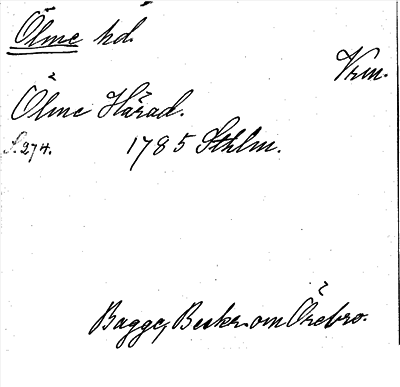 Ölme hd.
Vrm.
Ölme Härad.
S. 274. 1785 Sthlm.
Bagge, Beskr. om Örebro.